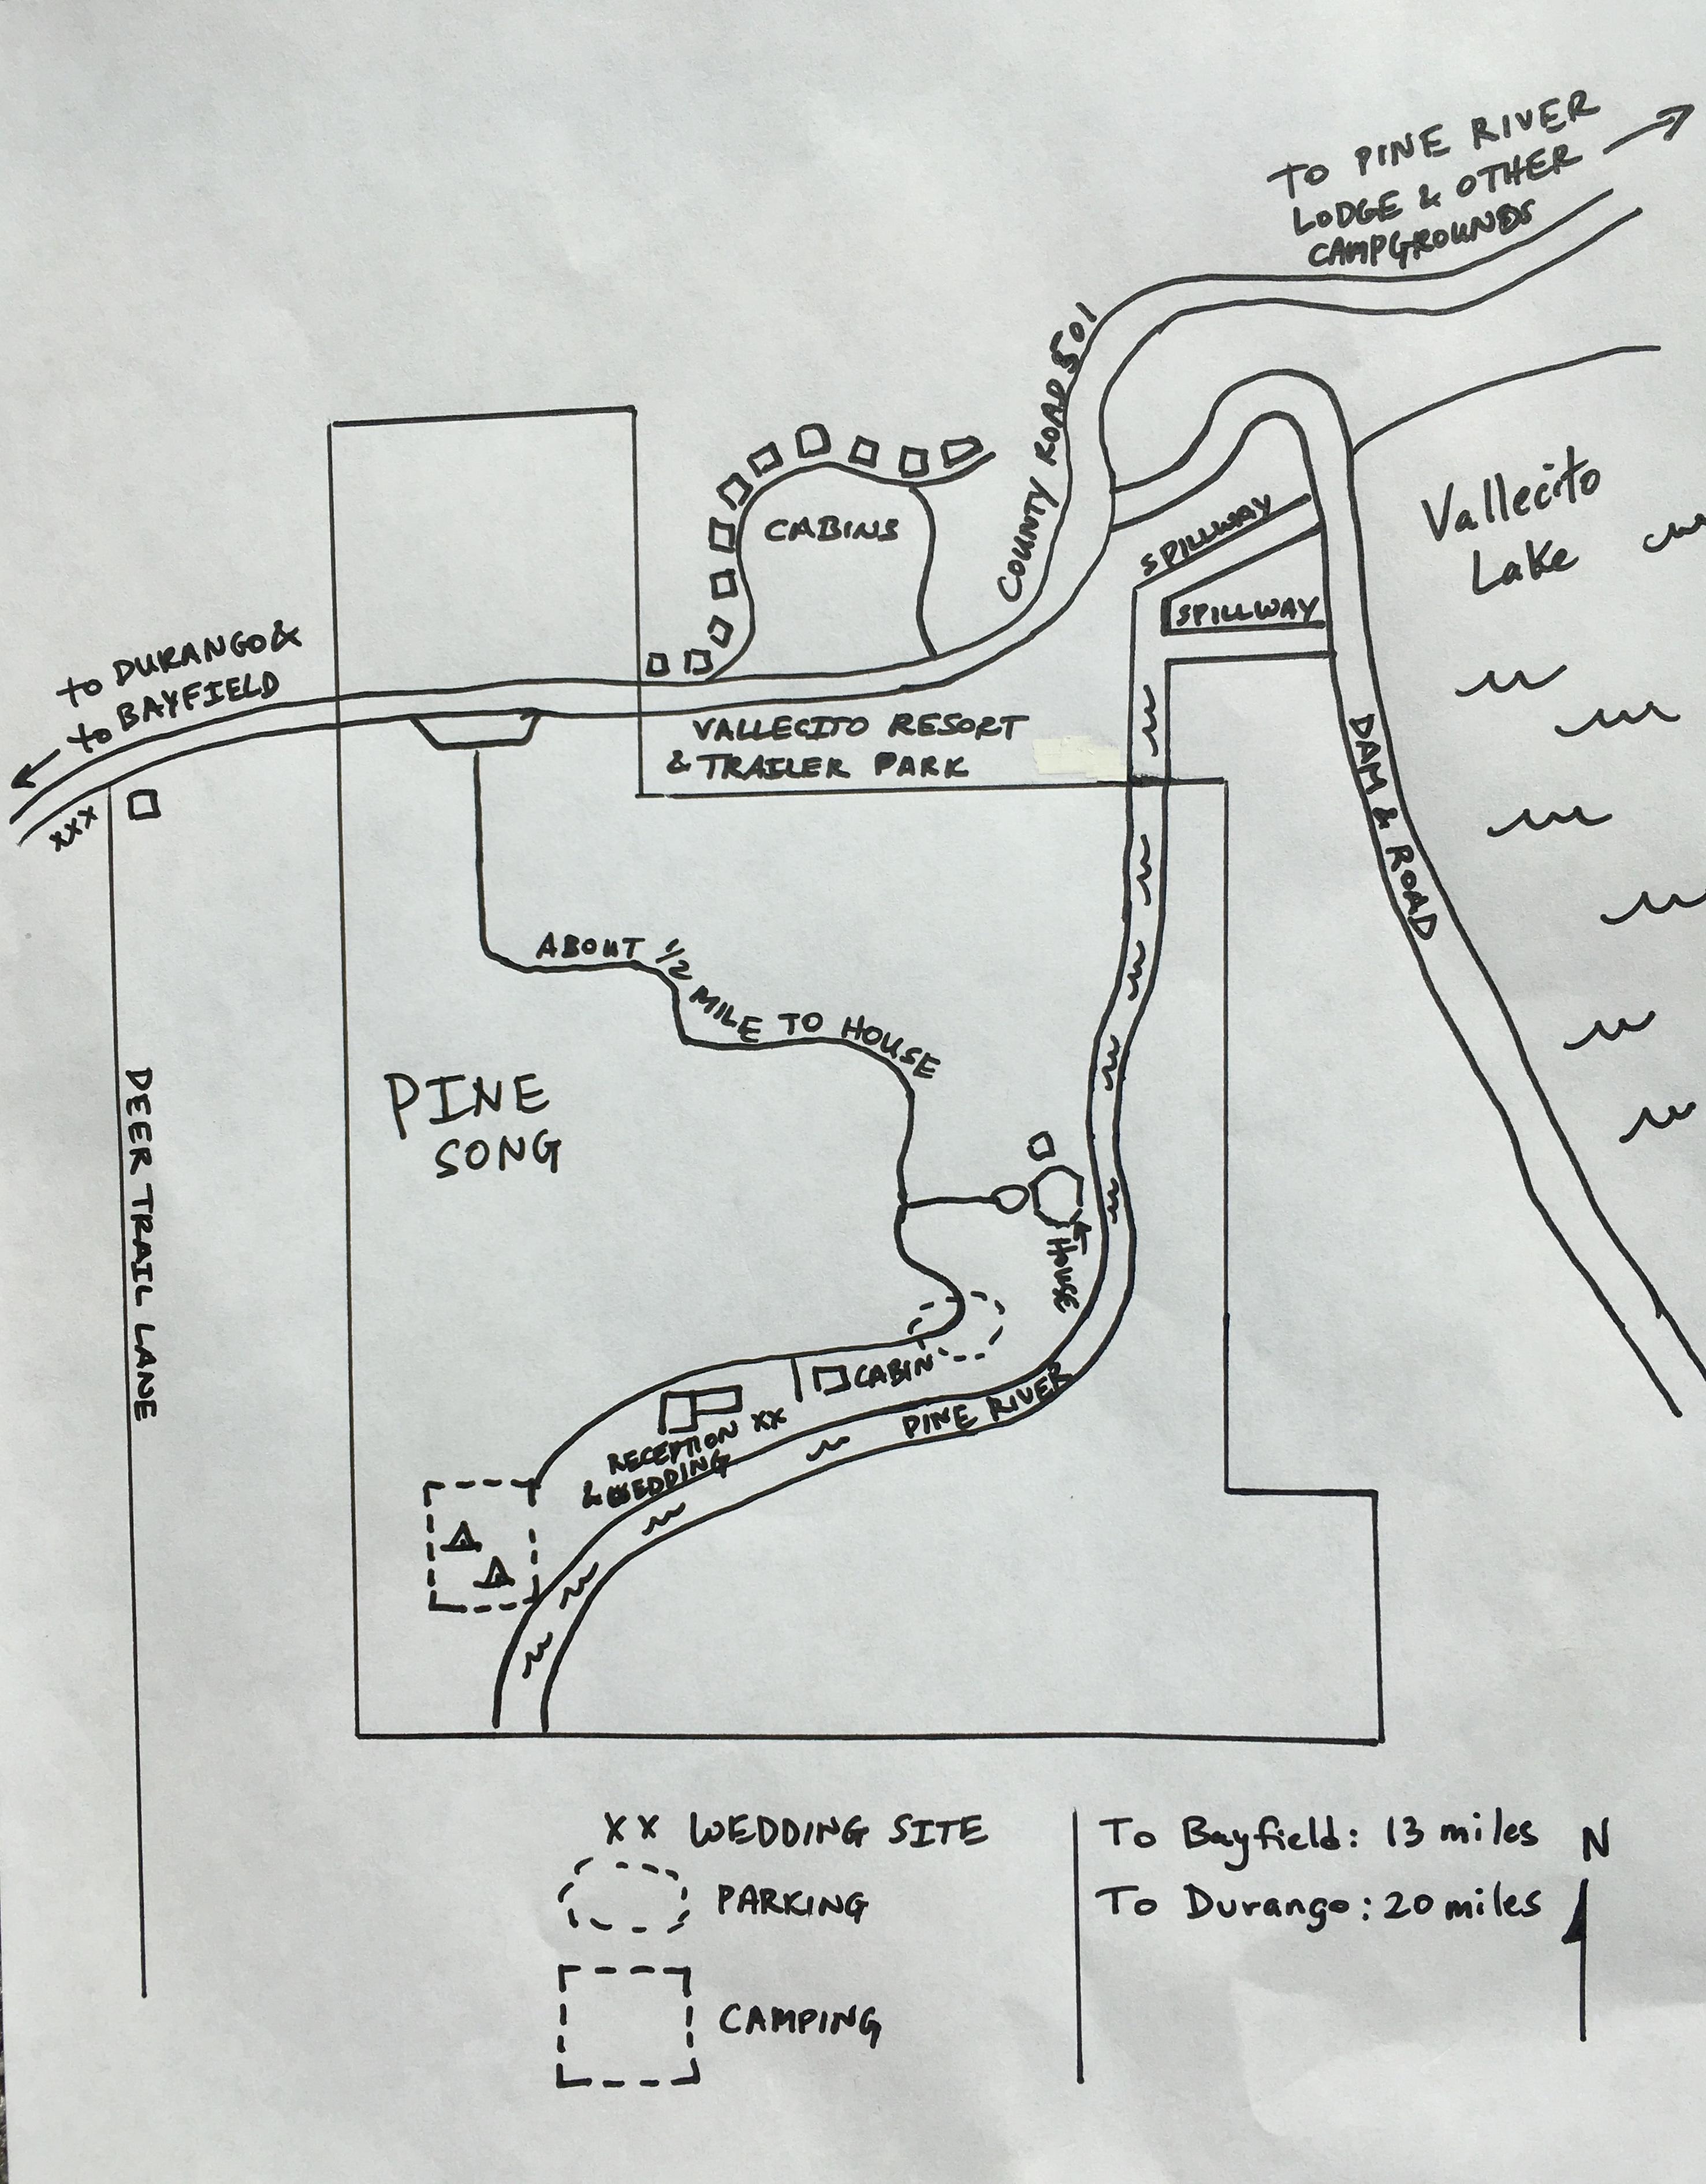 TO PINE RIVER
LODGE & OTHER
CAMPGROUNDS
COUNTY ROAD 501
CABINS
SPILLWAY
SPILLWAY
Vallecito
Lake
TO DURANGO &
TO BAYFIELD
XXX
VALLECITO RESORT
& TRAILER PARK
DAM & ROAD
ABOUT 1/2
MILE TO HOUSE
PINE
SONG
DEER TRAIL LANE
HOUSE
CABIN
RECEPTION XX
& WEDDING
PINE RIVER
XX WEDDING SITE
PARKING
CAMPING
To Bayfield: 13 miles
To Durango: 20 miles
N